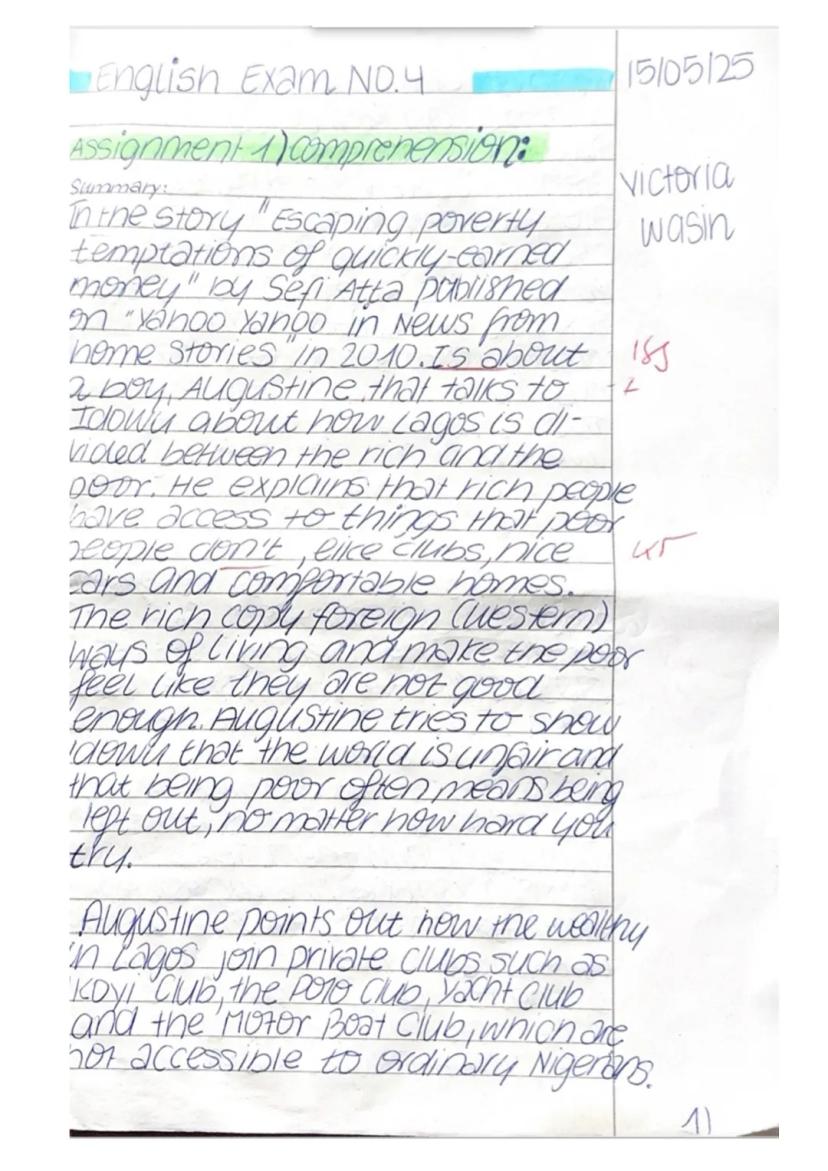 English Exam NO.4
15/05/25
Assignment 1) comprehension:
Victoria
Wasin
Summary:
In the story "Escaping poverty
temptations of quickly-earned
money" by Sefi Atta published
on "Yahoo Yahoo in News from
home stories" in 2010. Is about
a boy, Augustine that talks to
Idowu about how Lagos is di-
vided between the rich and the
poor. He explains that rich people
have access to things that poor
people don't, elice clubs, nice
cars and comfortable homes.
The rich copy foreign (western)
ways of living and make the poor
feel like they are not good
enough. Augustine tries to show
Idowu that the world is unfair and
that being poor often means being
left out, no matter how hard you
try.
Augustine points out how the wealthy
in Lagos join private clubs such as
Ikoyi Club, the Polo Club, Yacht Club
and the Motor Boat Club, which are
not accessible to ordinary Nigerians.
1)